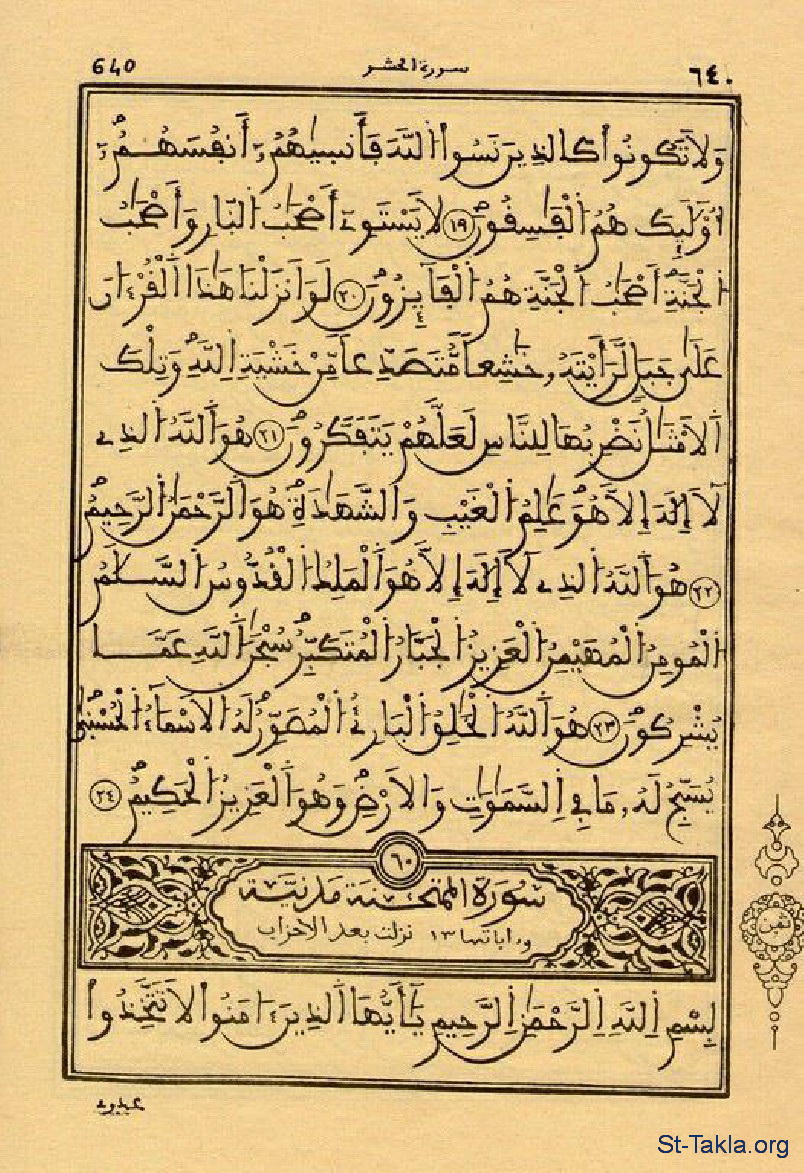 640 سورة الحشر ٦٤٠
وَلَا تَكُونُوا۟ كَالذِينَ نَسُوا۟ اُ۬للَّهَ فَأَنس۪يٰهُمُۥٓ أَنفُسَهُمُۥٓ
أُوْلَٰٓئِكَ هُمُ اُ۬لْفَٰسِقُونَۖ ١٩ لَا يَسْتَوِےٓ أَصْحَٰبُ اُ۬لنّ۪ارِ وَأَصْحَٰبُ
اُ۬لْجَنَّةِۖ أَصْحَٰبُ اُ۬لْجَنَّةِ هُمُ اُ۬لْفَآئِزُونَۖ ٢٠ لَوَ اَنزَلْنَا هَٰذَا اَ۬لْقُرْءَانَ
عَلَىٰ جَبَلٖ لَّرَأَيْتَهُۥ خَٰشِعاٗ مُّتَصَدِّعاٗ مِّنْ خَشْيَةِ اِ۬للَّهِۖ وَتِلْكَ
اَ۬لَامْثَٰلُ نَضْرِبُهَا لِلنَّاسِ لَعَلَّهُمْ يَتَفَكَّرُونَۖ ٢١ هُوَ اَ۬للَّهُ اُ۬لذِے
لَآ إِلَٰهَ إِلَّا هُوَۖ عَٰلِمُ اُ۬لْغَيْبِ وَالشَّهَٰدَةِۖ هُوَ اَ۬لرَّحْمَٰنُ اُ۬لرَّحِيمُۖ
٢٢ هُوَ اَ۬للَّهُ اُ۬لذِے لَآ إِلَٰهَ إِلَّا هُوَ اَ۬لْمَلِكُ اُ۬لْقُدُّوسُ اُ۬لسَّلَٰمُ
اُ۬لْمُومِنُ اُ۬لْمُهَيْمِنُ اُ۬لْعَزِيزُ اُ۬لْجَبَّارُ اُ۬لْمُتَكَبِّرُۖ سُبْحَٰنَ اَ۬للَّهِ عَمَّا
يُشْرِكُونَۖ ٢٣ هُوَ اَ۬للَّهُ اُ۬لْخَٰلِقُ اُ۬لْبَارِئُ اُ۬لْمُصَوِّرُۖ لَهُ اُ۬لَاسْمَآءُ اُ۬لْحُسْن۪يٰۖ
يُسَبِّحُ لَهُۥ مَا فِے اِ۬لسَّمَٰوَٰتِ وَالَارْضِۖ وَهُوَ اَ۬لْعَزِيزُ اُ۬لْحَكِيمُۖ ٢٤
٦٠
سورة الممتحنة مدنية
وءاياتها ١٣ نزلت بعد الأحزاب
ثمن
بِسْمِ اِ۬للَّهِ اِ۬لرَّحْمَٰنِ اِ۬لرَّحِيمِ يَٰٓأَيُّهَا اَ۬لذِينَ ءَامَنُوا۟ لَا تَتَّخِذُوا۟
عدوے
St-Takla.org